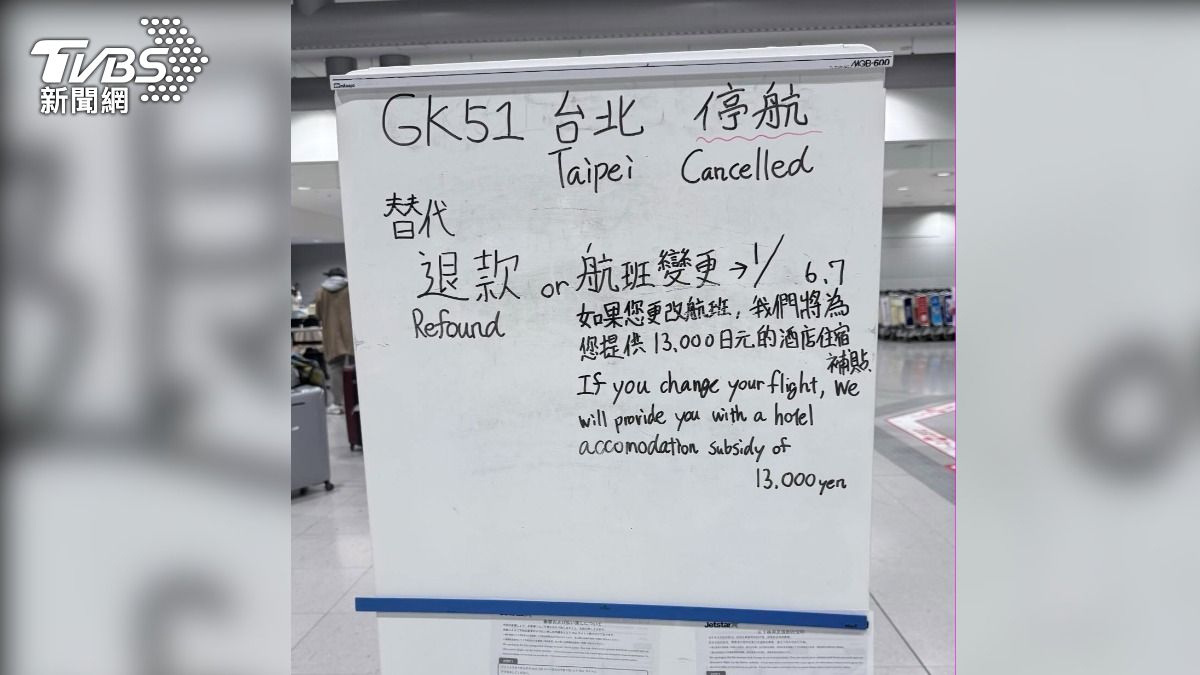 TVBS
新聞網
MGB-600
GK51 台北 停航
Taipei Cancelled
替代
退款 or 航班變更→1/ 6.7
Refound
如果您更改航班,我們將為
您提供13,000日元的酒店住宿
補貼
If you change your flight, we
will provide you with a hotel
accomodation subsidy of
13.000yen
Jetstar